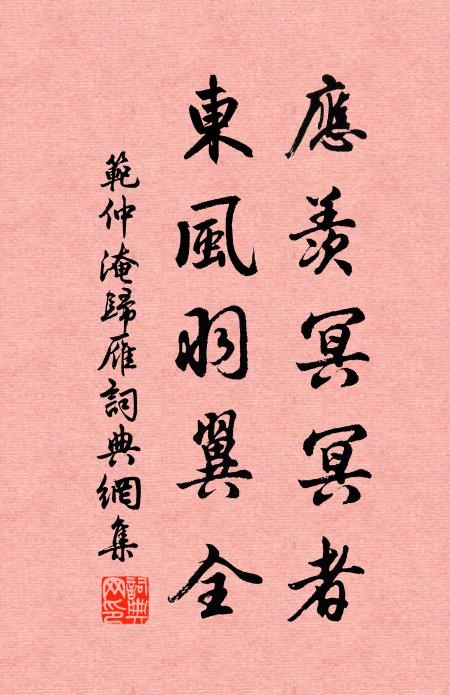 應羨冥冥者
東風羽翼全
範仲淹歸雁詞典網集
詞典網印